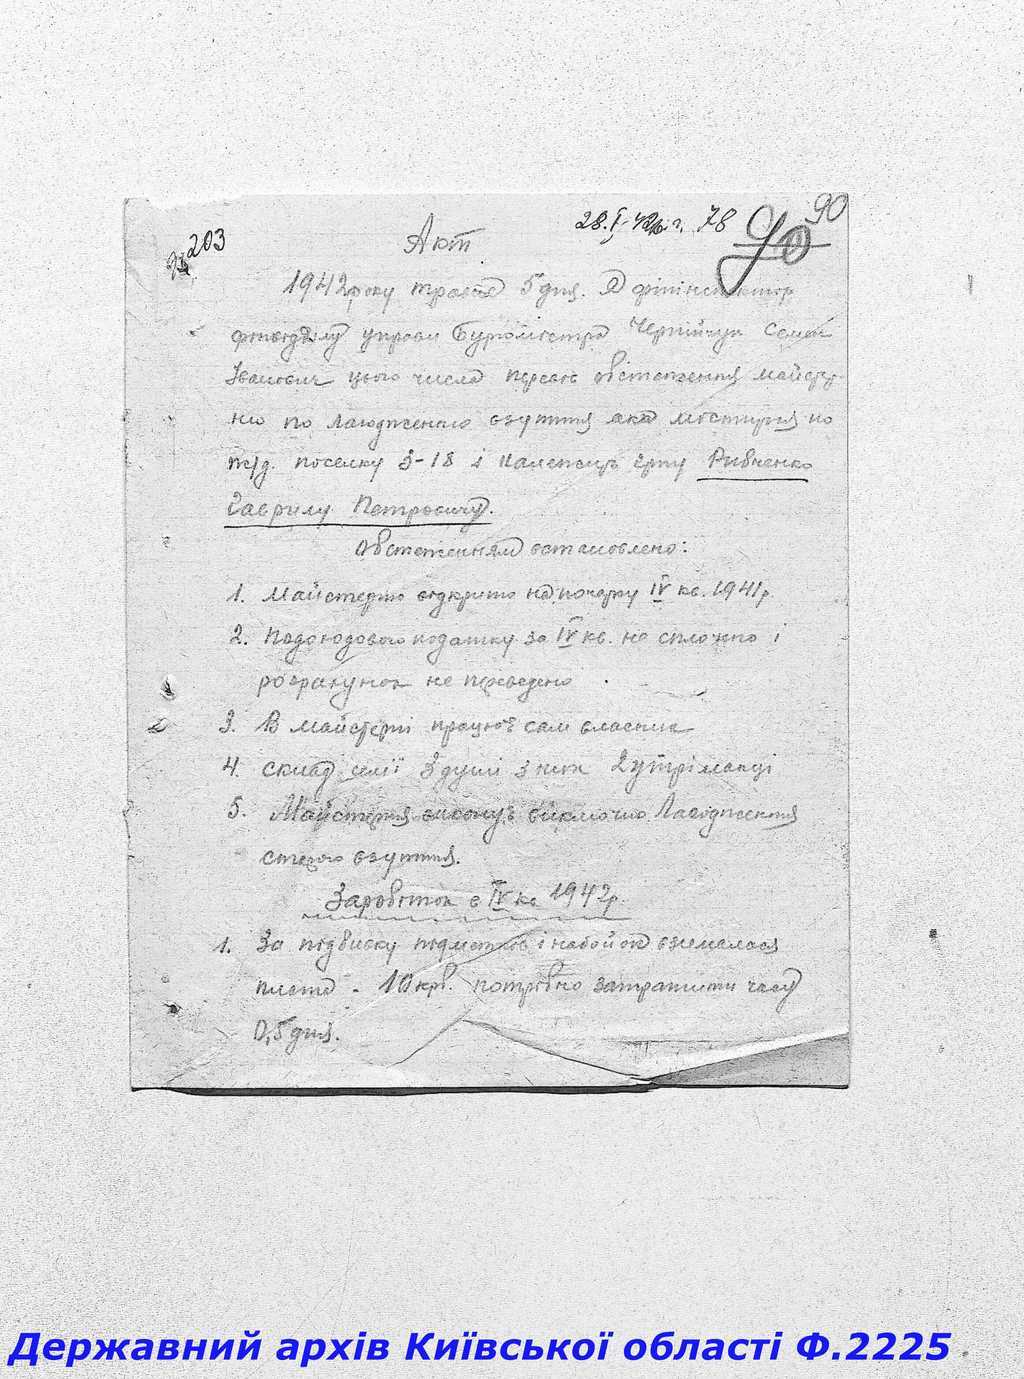 203
28.I-42 г. 78
90
90
Акт
1942 року травня 5 дня. Я фінінспектор
фінвідділу управи Бурмістра Семен
Іванович цього числа перевів обстеження майстер-
ню по лагодженню взуття яка міститься по
поселку 3-18 і належить гр-ну Рибченко
Гаврилу Петровичу.
Обстеженням встановлено:
1. Майстерню відкрито на початку IV кв. 1941 р.
2. Подоходового податку за IV кв. не сплочено і
розрахунок не переведено
3. В майстерні працює сам власник
4. Склад семії 3 душі з них 2 утріманці
5. Майстерня виконує виключно Лагодження
старого взуття.
Заробіток в IV кв 1942 р.
1. За підбивку підметків і набойок взималася
плата - 10 крб. потрібно затратити часу
0,5 дня.
Державний архів Київської області Ф.2225